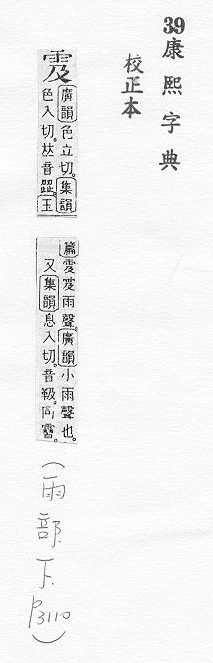 39 康熙字典
校正本
廣韻色立切。集韻
色入切。𠀤音歰。玉
篇雨聲。廣韻小雨聲也。
又集韻息入切。音靸。同
(雨部.下.P3110)